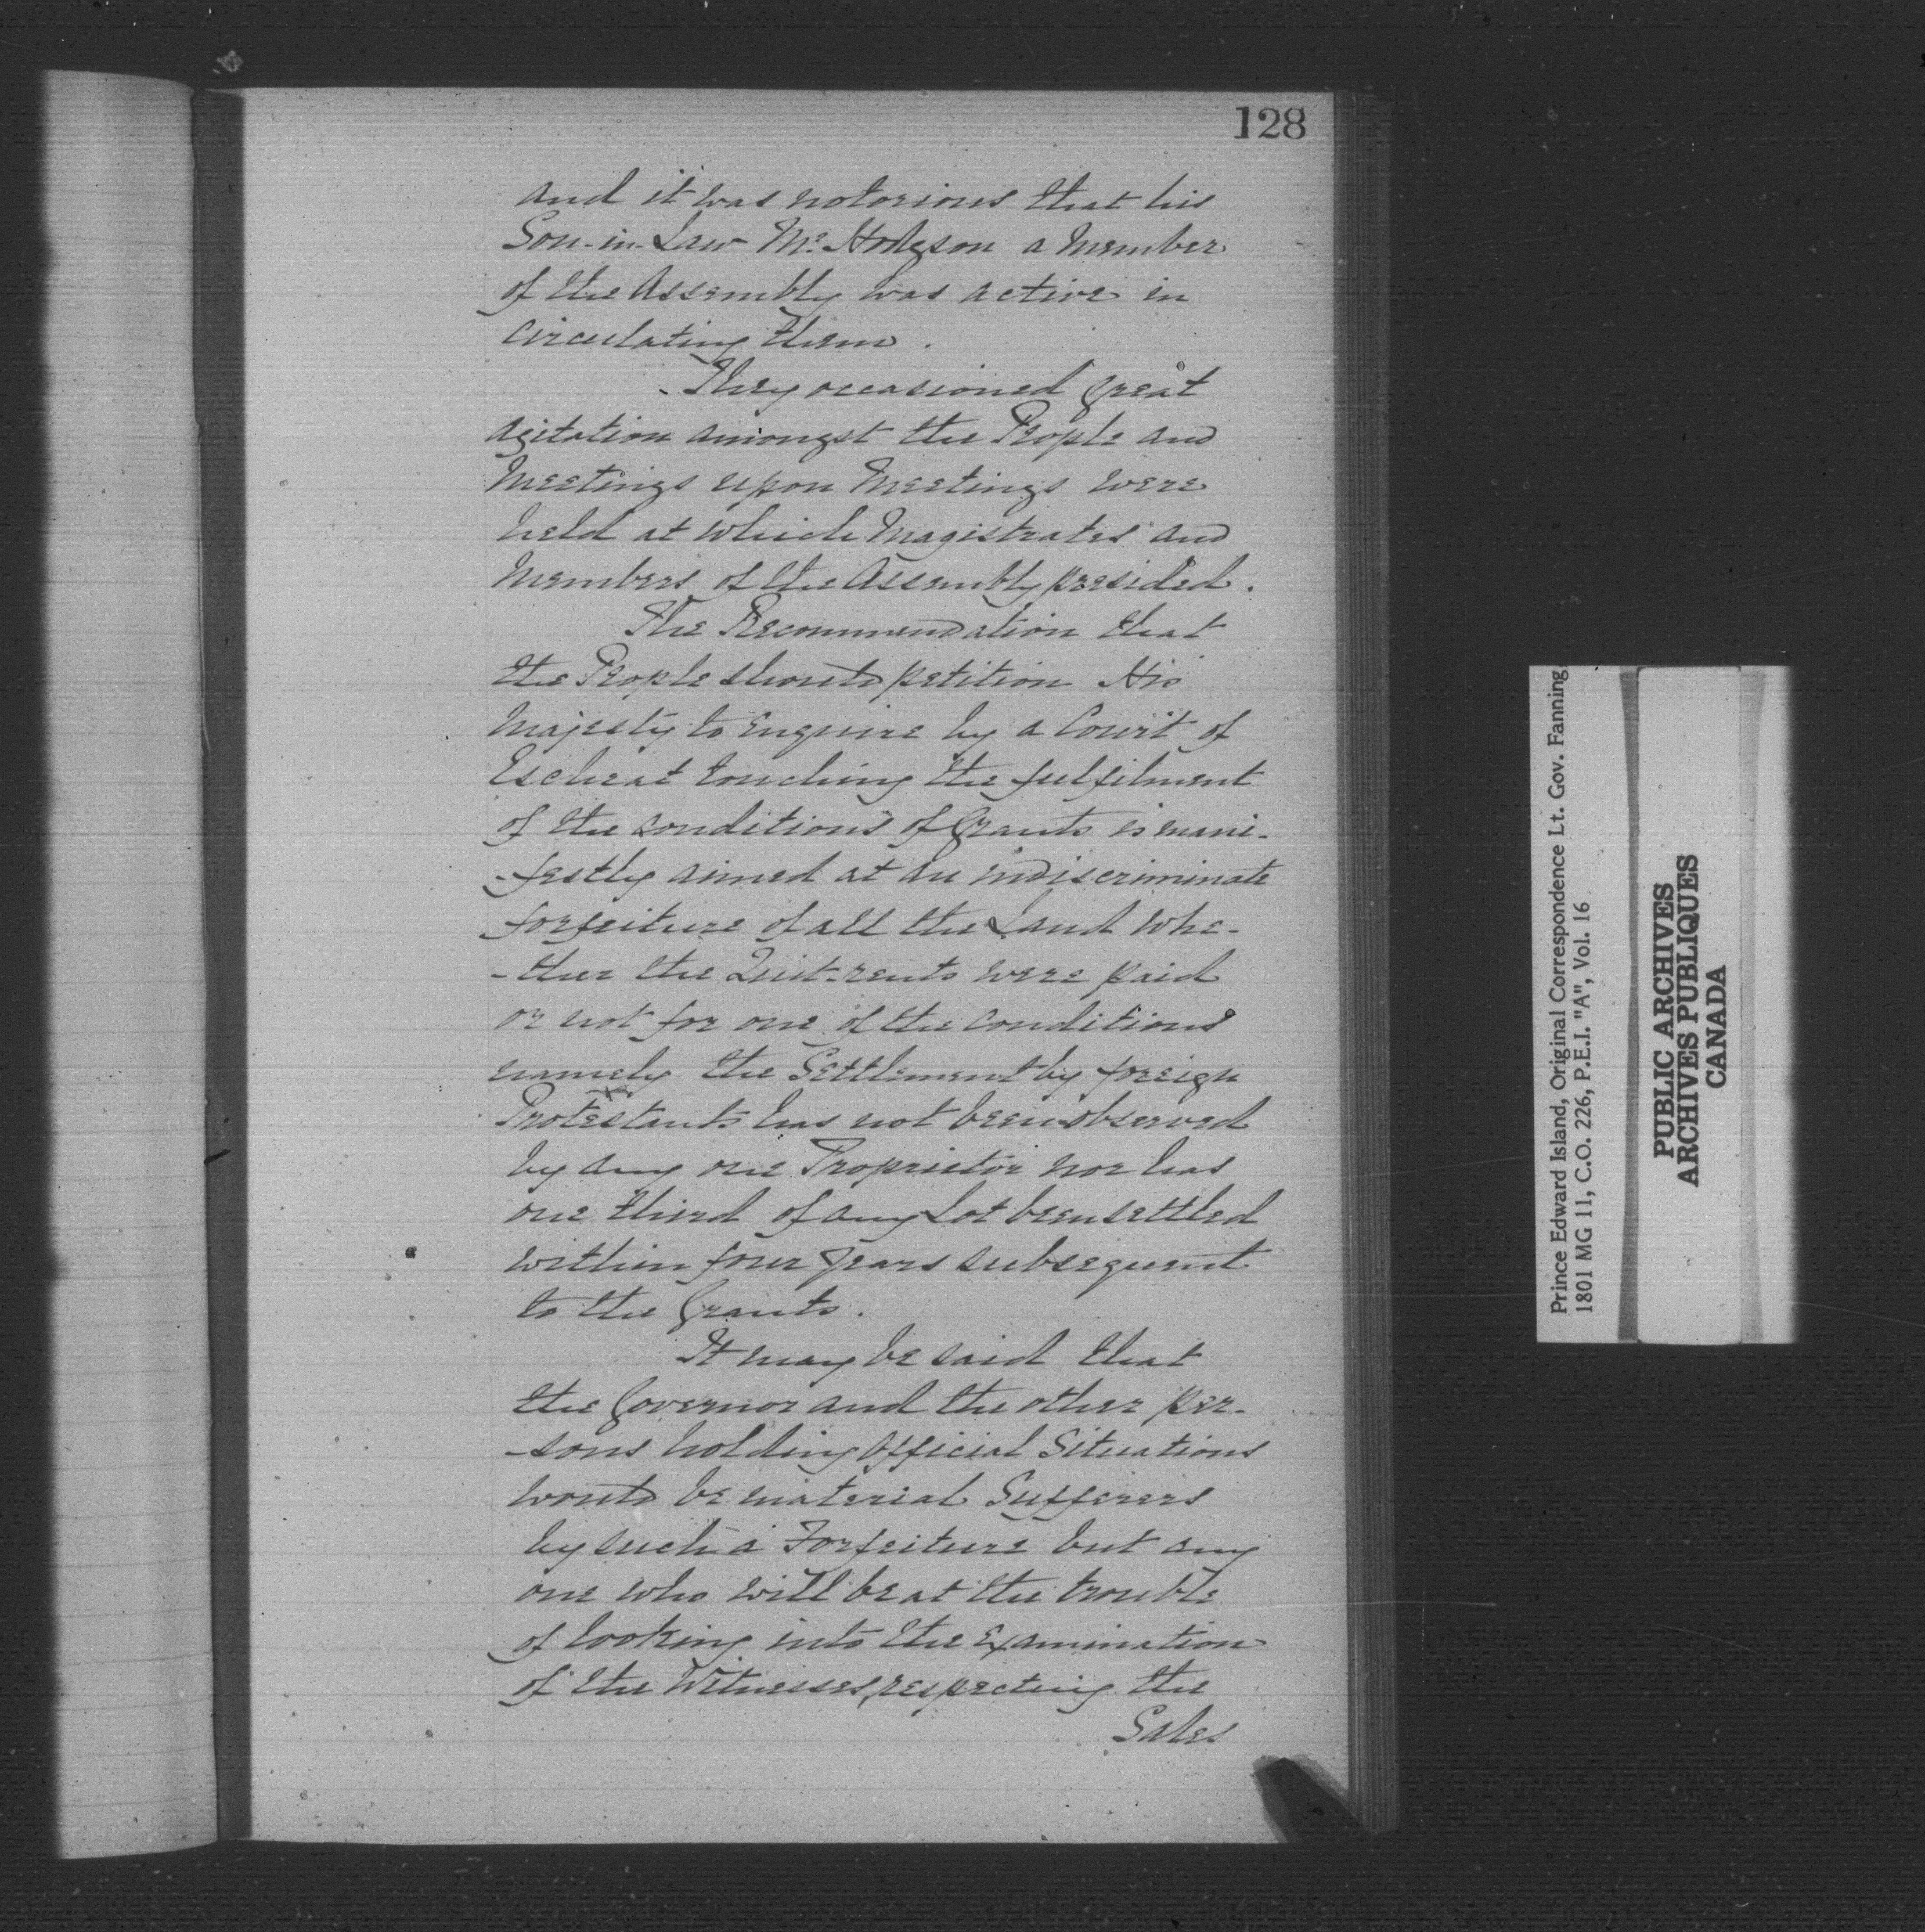 128
and it was notorious that his
Son-in-Law Mr. Hodgson a Member
of the Assembly was active in
circulating them.
They occasioned great
agitation amongst the People and
Meetings upon Meetings were
held at which Magistrates and
Members of the Assembly presided.
The Recommendation that
the People should petition His
Majesty to enquire by a Court of
Escheat touching the fulfilment
of the conditions of Grants is mani-
-festly aimed at an indiscriminate
forfeiture of all the Land whe-
-ther the Quit-rents were paid
or not for one of the conditions
namely the Settlement by foreign
Protestants has not been observed
by any one Proprietor nor has
one third of any Lot been settled
within four years subsequent
to the Grants.
It may be said that
the Governor and the other per-
-sons holding Official Situations
would be material Sufferers
by such a Forfeiture but any
one who will be at the trouble
of looking into the Examination
of the Witnesses, respecting the
Sales
Prince Edward Island, Original Correspondence Lt. Gov. Fanning
1801 MG 11, C.O. 226, P.E.I. "A", Vol. 16
PUBLIC ARCHIVES
ARCHIVES PUBLIQUES
CANADA